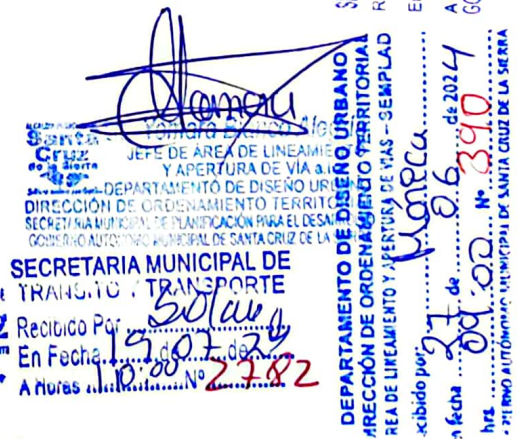 Santa
Cruz
de la Sierra
JEFE DE ÁREA DE LINEAMIE
Y APERTURA DE VÍA a.i
DEPARTAMENTO DE DISEÑO UR
DIRECCIÓN DE ORDENAMIENTO TERRITO
SECRETARIA MUNICIPAL DE PLANIFICACIÓN PARA EL DESA
GOBIERNO AUTÓNOMO MUNICIPAL DE SANTA CRUZ DE LA S
SECRETARIA MUNICIPAL DE
TRANSITO Y TRANSPORTE
Recibido Por
En Fecha 19 de 07 de 24
A Horas 10:00 Nº 2782
DEPARTAMENTO DE DISEÑO URBANO
IRECCIÓN DE ORDENAMIENTO TERRITORIAL
REA DE LINEAMIENTO Y APERTURA DE VIAS - SEMPLAD
ecibido por: Mónica
n fecha 27 de 06 de 2024
hrs. 09:00 Nº 390
MUNICIPAL DE SANTA CRUZ DE LA SIERRA